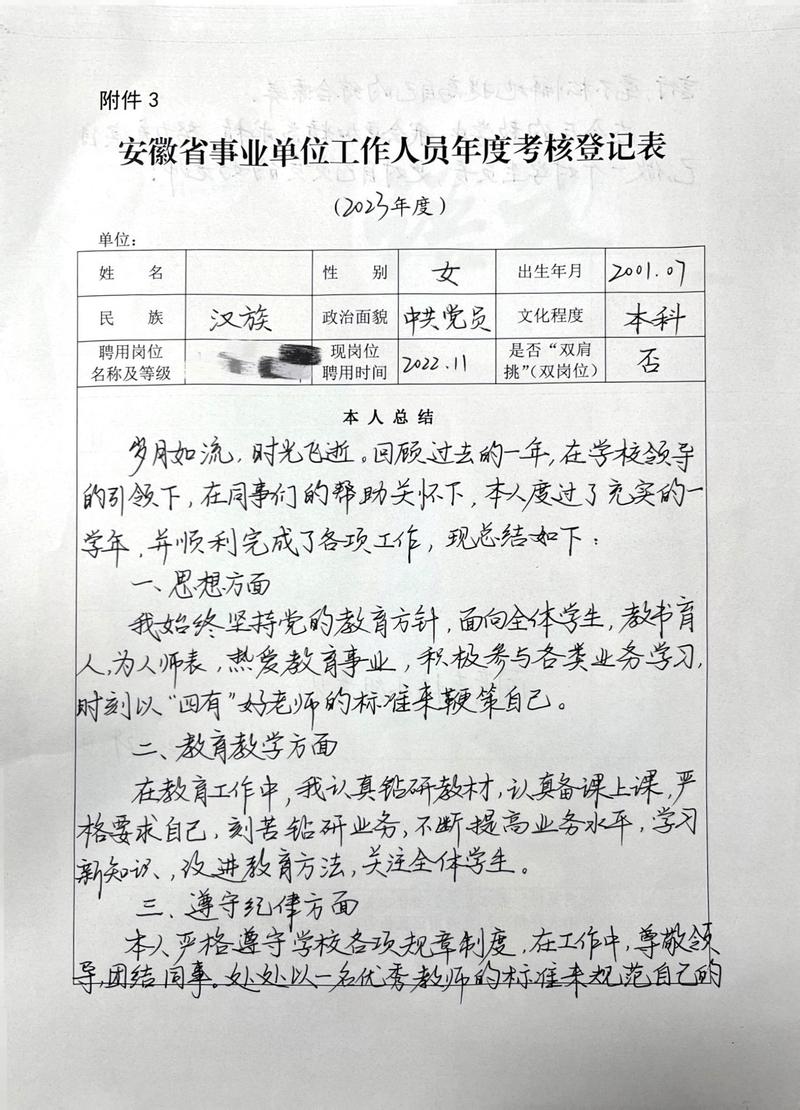 附件3
安徽省事业单位工作人员年度考核登记表
(2023年度)
单位:
姓 名 性 别 女 出生年月 2001.07
民 族 汉族 政治面貌 中共党员 文化程度 本科
聘用岗位名称及等级 现岗位聘用时间 2022.11 是否“双肩挑”(双岗位) 否
本人总结
岁月如流,时光飞逝。回顾过去的一年,在学校领导
的引领下,在同事们的帮助关怀下,本人度过了充实的一
学年,并顺利完成了各项工作,现总结如下:
一、思想方面
我始终坚持党的教育方针,面向全体学生,教书育
人,为人师表,热爱教育事业,积极参与各类业务学习,
时刻以“四有”好老师的标准来鞭策自己。
二、教育教学方面
在教育工作中,我认真钻研教材,认真备课上课,严
格要求自己,刻苦钻研业务,不断提高业务水平,学习
新知识,改进教育方法,关注全体学生。
三、遵守纪律方面
本人严格遵守学校各项规章制度,在工作中,尊敬领
导,团结同事。处处以一名优秀教师的标准来规范自己的